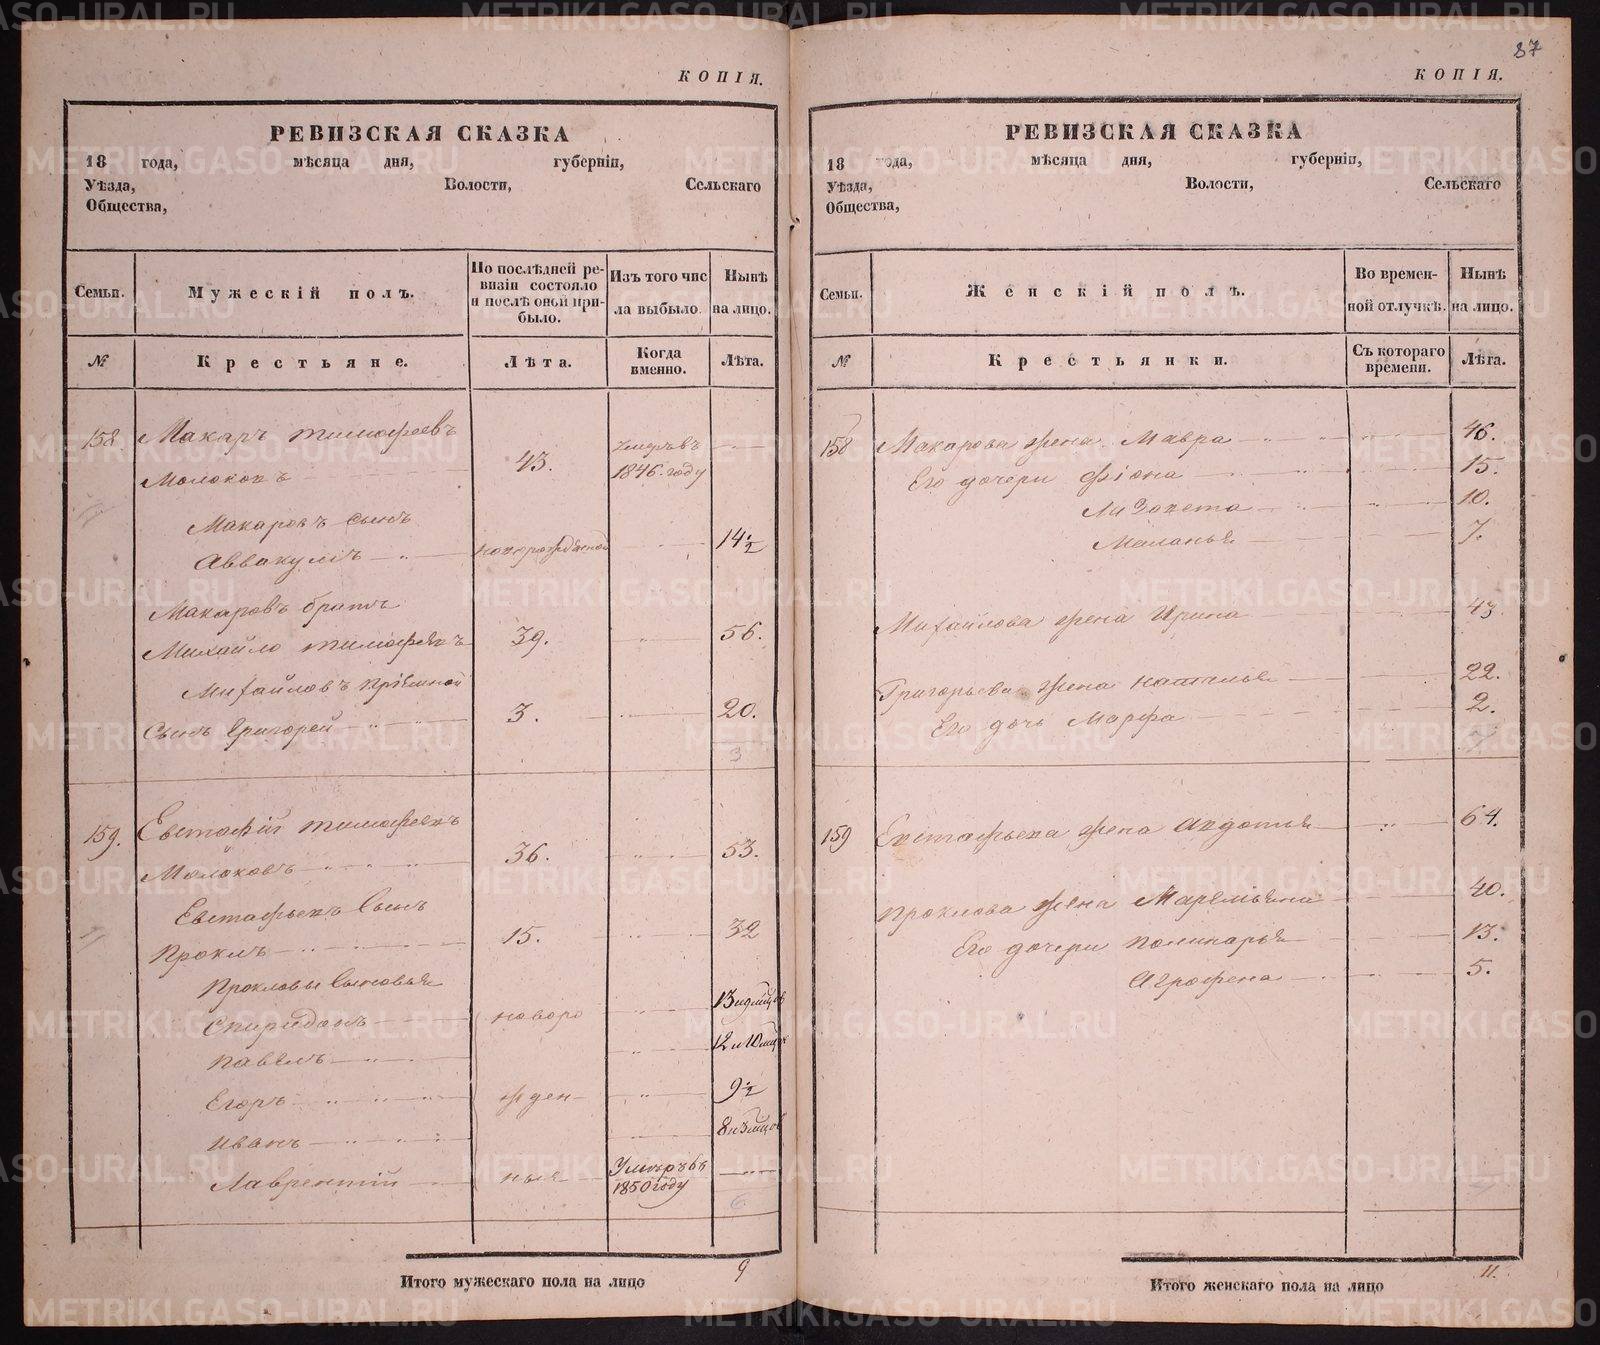 КОПІЯ.
РЕВИЗСКАЯ СКАЗКА
18 года, мѣсяца дня, губерніи,
Уѣзда, Волости, Сельскаго
Общества,
Семьи.
Мужескій полъ.
По послѣдней ре-
визіи состояло
и послѣ оной при-
было.
Изъ того чис
ла выбыло
Нынѣ
на лицо.
№
Крестьяне.
Лѣта.
Когда
именно.
Лѣта.
158 Макаръ Тимофеевъ
Молоковъ 43. Умеръ въ
1846. году
Макаровъ сынъ
Аввакумъ новорожденной 14½
Макаровъ братъ
Михайло Тимофеевъ 39. 56.
Михайловъ пріемной
Сынъ Григорей 3. 20.
3
159. Евстафій Тимофеевъ
Молоковъ 36. 53.
Евстафьевъ Сынъ
Проклъ 15. 32
Прокловы Сыновья
Спиридонъ новоро 13
Павелъ 12 и 10
Егоръ жден- 9½
Иванъ 8 и 3
Лаврентій ныя Умеръ въ
1850 году
6
Итого мужескаго пола на лицо 9
87
КОПІЯ.
РЕВИЗСКАЯ СКАЗКА
18 года, мѣсяца дня, губерніи,
Уѣзда, Волости, Сельскаго
Общества,
Семьи.
Женскій полъ.
Во времен-
ной отлучкѣ.
Нынѣ
на лицо.
№
Крестьянки.
Съ котораго
времени.
Лѣта.
158 Макарова жена Мавра 46.
Его дочери Фіона 15.
10.
Маланья 7.
Михайлова жена Ирина 43.
Григорьева жена Наталья 22.
Его дочь Марфа 2.
7
159 Евстафьева жена Авдотья 64.
Проклова жена Маремьяна 40.
Его дочери Полинарья 13.
Агрофена 5.
4
Итого женскаго пола на лицо 11.
METRIKI.GASO-URAL.RU